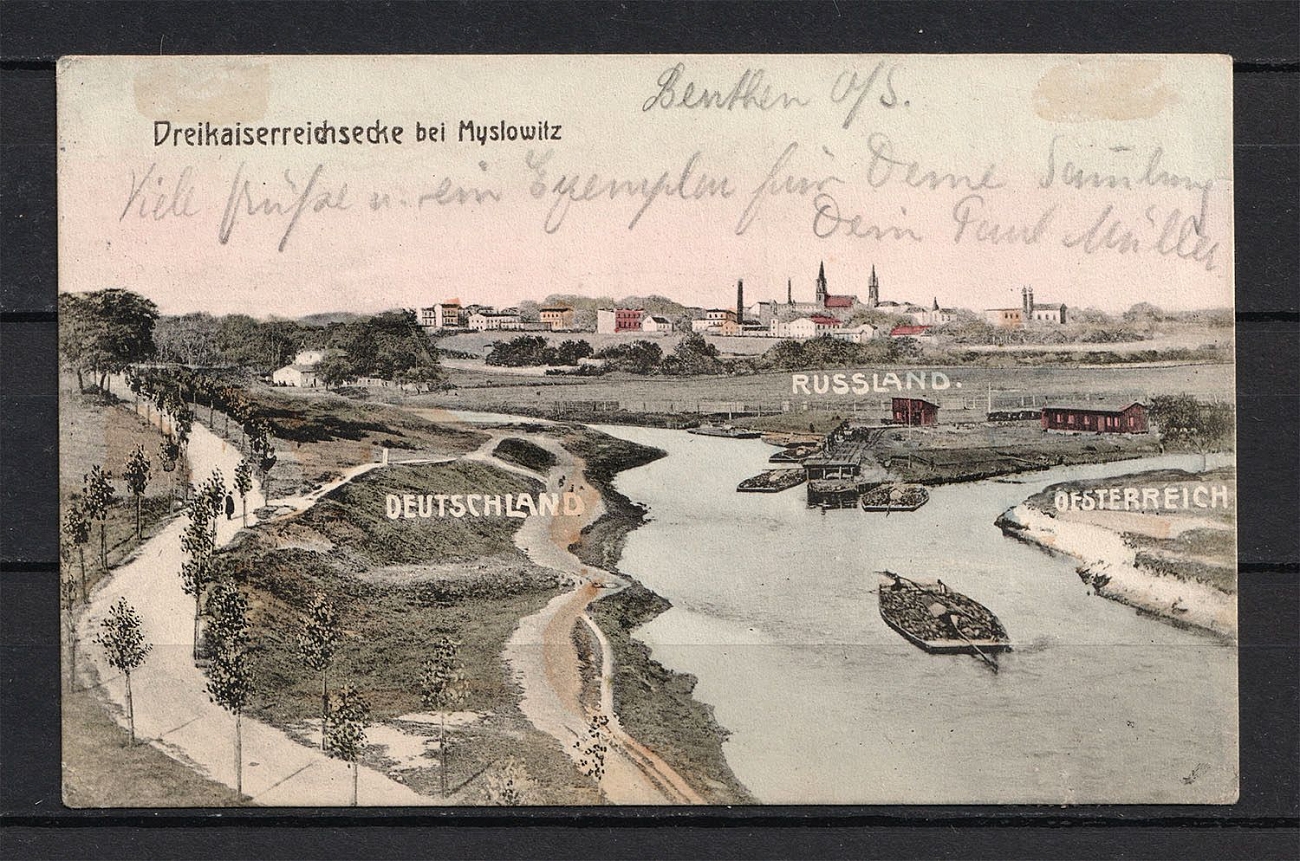 Beuthen O/S.
Dreikaiserreichsecke bei Myslowitz
Viele Grüße u. ein Exemplar für Deine Sammlung
Dein Paul Müller
RUSSLAND.
DEUTSCHLAND
OESTERREICH